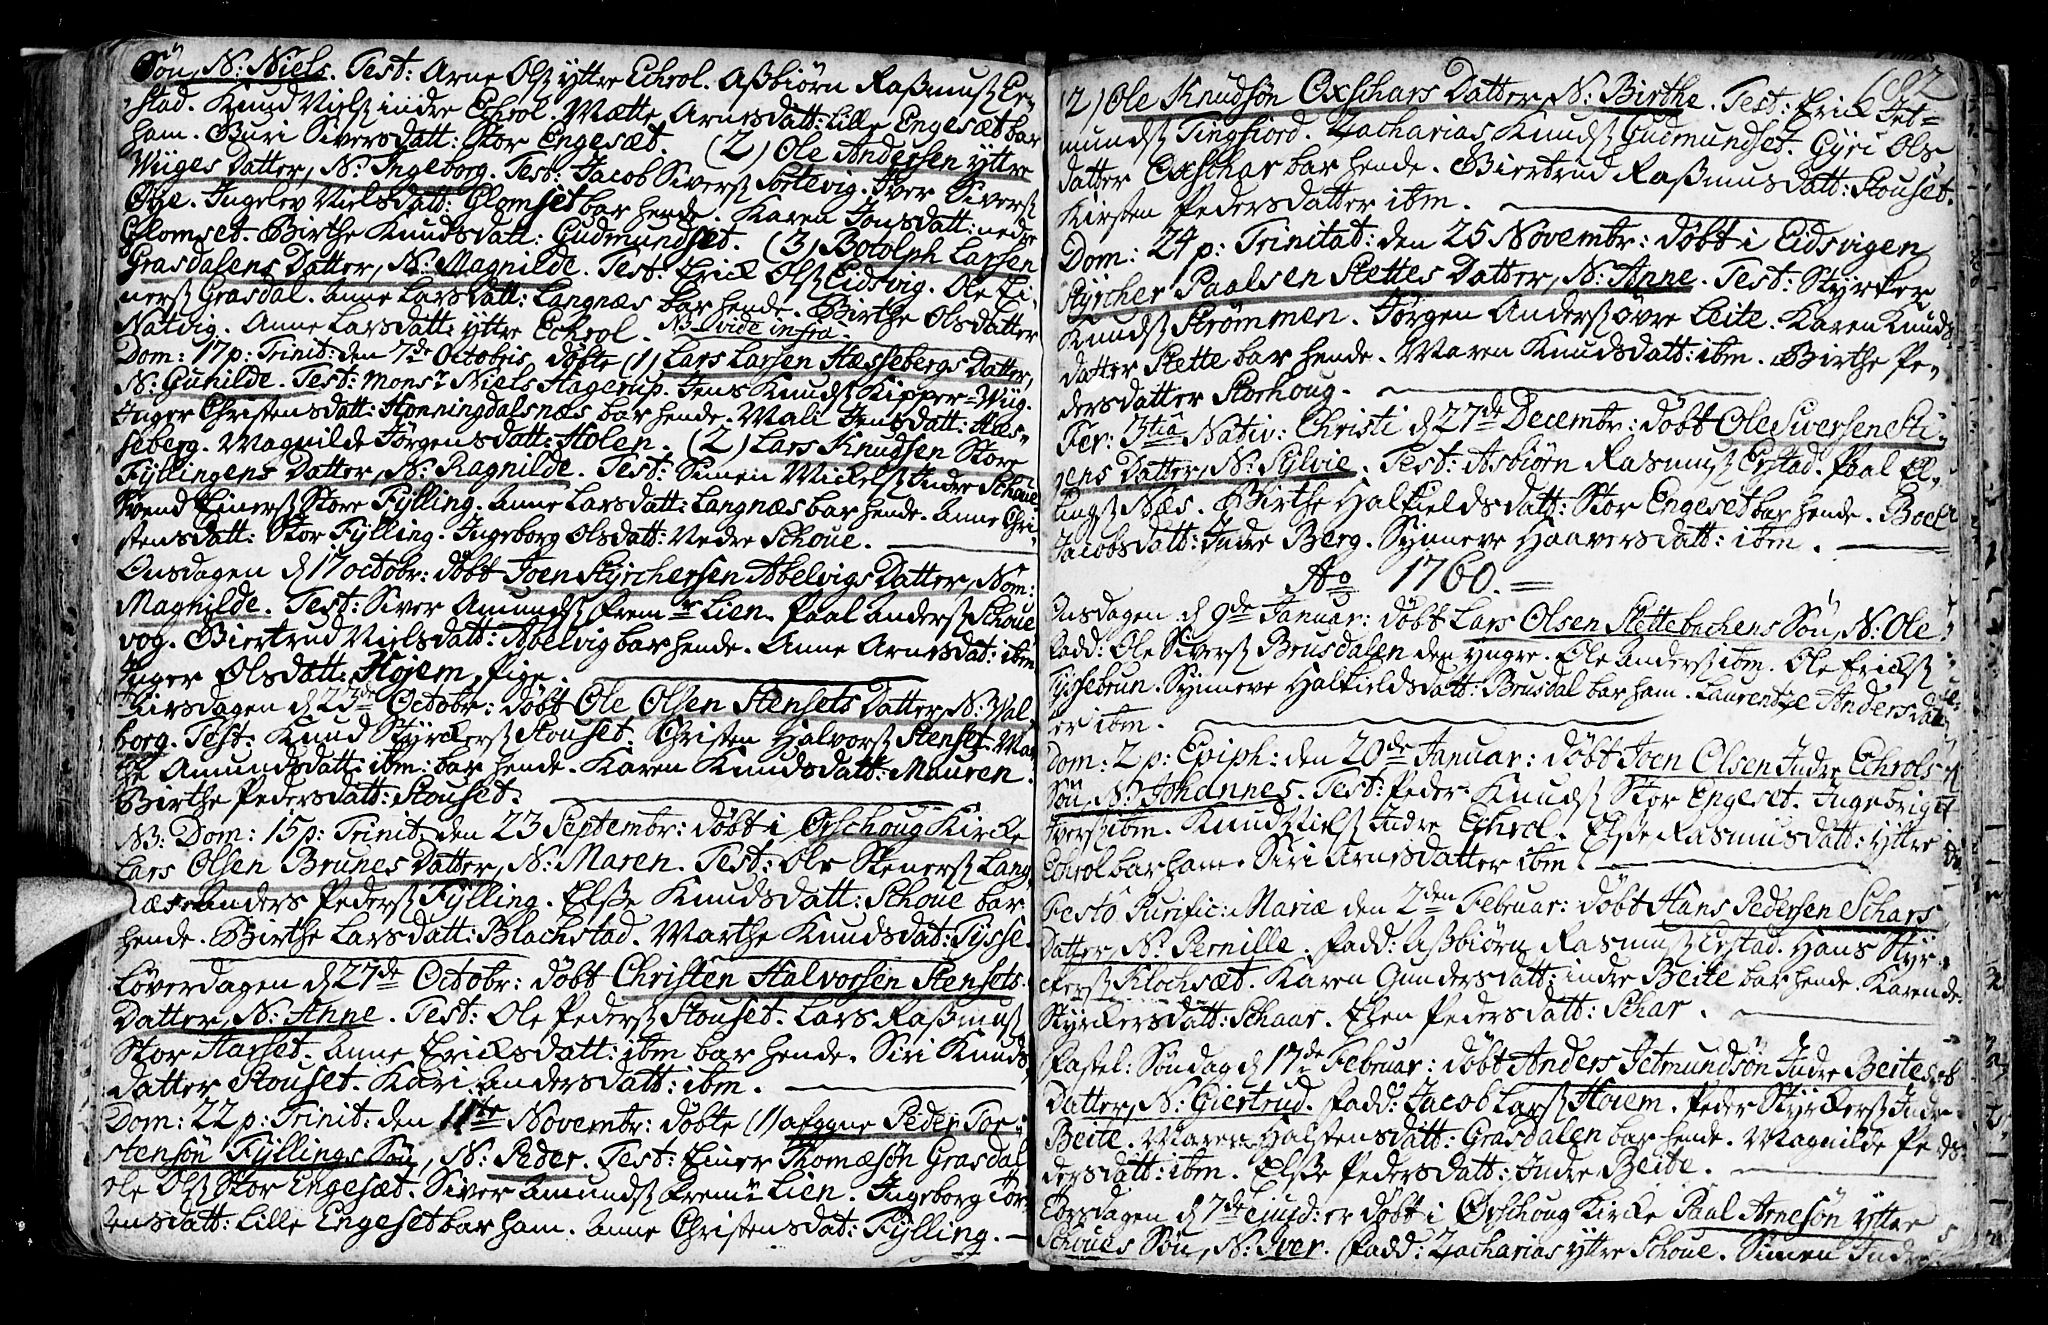 Søn, N: Niels. Test: Arne Olsß yttre Echrol. Aßbiørn Raßmusß Er-
stad. Knud Nielsß indre Echrol. Mætte Arnesdatt: Lille Engesæt bar
ham. Guri Siversdatt: Stor Engesæt. (2) Ole Andersen yttre
Wiiges Datter, N: Ingeborg. Test: Jacob Siversß Sortevig. Iver Siversß
Øye. Ingelev Nielsdatt: Glomset bar hende. Karen Jonsdatt: nedre
Glomset. Birthe Knudsdatt: Gudmundset. (3) Botolph Larsen
Grasdalens Datter, N: Magnilde. Test: Erick Olsß Eidsvig. Ole Ei-
nersß Grasdal. Anne Larsdatt: Langnæs bar hende. Birthe Olsdatter
Natvig. Anne Larsdatt: yttre Echrol. NB vide infra.
Dom: 17 p: Trinit: den 7de Octobris, døbte (1) Lars Larsen Hæssebergs Datter,
N: Gunilde. Test: Monsr Niels Hagerup. Jens Knudsß Kipper-Wiig.
Inger Christensdatt: Honningdalsnæs bar hende. Mali Jensdatt: Hæs-
seberg. Magnilde Jørgensdatt: Holen. (2) Lars Knudsen Store
Fyllingens Datter, N: Ragnilde. Test: Simen Mickelsß Indre Schoue
Svend Einersß Store Fylling. Anne Larsdatt: Langnæs bar hende. Anne Chri-
stensdatt: Stor Fylling. Ingeborg Olsdatt: Nedre Schoue.
Onsdagen d 17 octobr: døbt Joen Styrchersen Abelvigs Datter, Nom:
Magnilde. Test: Siver Amundsß Frem Lien. Paal Andersß Schoue
vog. Giertrud Nielsdatt: Abelvig bar hende. Anne Arnesdat: ibm
Inger Olsdatt: Hojem, pige.
Tirsdagen d 23de Octobr: døbt Ole Olsen Stensets Datter, N: Wal-
borg. Test: Knud Styrckersß Stouset. Christen Halvorsß Stenset. Mar-
the Amundsdatt: ibm: bar hende. Karen Knudsdatt: Mauren.
Birthe Pedersdatt: Stouset.
NB: Dom: 15 p: Trinit: den 23 Septembr: døbt i Ørschoug Kircke
Lars Olsen Brunes Datter, N: Maren. Test: Ole Stenersß Lang-
næs. Anders Pedersß Fylling. Elsße Knudsdatt: Schoue bar
hende. Birthe Larsdatt: Blachstad. Marthe Knudsdat: Tysse.
Løverdagen d 27de Octobr: døbt Christen Halvorsen Stensets
Datter, N: Anne. Test: Ole Pedersß Stouset. Lars Raßmusß
Stor Harset. Anne Ericksdatt: ibm bar hende. Siri Knuds-
datter Stouset. Kari Andersdatt: ibm.
Dom: 22 p: Trinit: den 11te Novembr: døbte (1) afggne Peder Tor-
stensøn Fyllings Søn, N: Peder. Test: Einer Thomæsøn Grasdal
Ole Olsß Stor Engesæt. Siver Amundsß Frem Lien. Ingeborg Tor-
ensdatt: Lille Engeset bar ham. Anne Christensdat: Fylling.
182
(2) Ole Knudsøn Oxschars Datter, N: Birthe. Test: Erick Jet-
mundsß Tingfiord. Zacharias Knudsß Gudmundset. Gyri Ols-
datter Oxschar bar hende. Giertrud Raßmusdatt: Stouset.
Kirsten Pedersdatter ibm.
Dom: 24 p: Trinitat: den 25 Novembr: døbt i Eidsvigen
Styrcher Paalsen Stettes Datter, N: Anne. Test: Styrker
Knudsß Strømmen. Jørgen Andersß øvre Leite. Karen Knuds-
datter Stette bar hende. Maren Knudsdatt: ibm. Birthe Pe-
dersdatter Storhoug.
Fer: 3tia Nativ: Christi d 27de Decembr: døbt Ole Sversen Sti-
gens Datter, N: Sylvie. Test: Asbiørn Rasmusß Erstad. Paal El-
lingsß Næs. Birthe Halfieldsdatt: Stor Engeset bar hende. Boel
Jacobsdatt: Indre Berg. Synneve Haaversdatt: ibm.
Ao 1760.
Onsdagen d 9de Januar: døbt Lars Olsen Stettebachens Søn, N: Ole
Fadd: Ole Siversß Brusdalen den yngre. Ole Andersß ibm. Ole Ericksß
Tyssebrun. Synneve Halfieldsdatt: Brusdal bar ham. Laurentze Andersdat-
er ibm.
Dom: 2 p: Epiph: den 20de Januar: døbt Joen Olsen Indre Echrols
Søn, N: Johannes. Test: Peder Knudsß Stor Engeset. Ingebriget
Iversß ibm. Knud Nielsß Indre Echrol. Elsße Rasmusdatt: yttre
Echrol bar ham. Siri Arnesdatter ibm.
Festo Purific: Mariæ den 2den Februar: døbt Hans Pedersen Schars
Datter, N: Pernille. Fadd: Aßbiørn Rasmusß Erstad. Hans Styr-
kersß Klochsæt. Karen Gundersdatt: indre Beite bar hende. Karen
Styrckersdatt: Schaar. Elen Pedersdatt: Schar.
Fastel: Søndag d 17de Februar: døbt Anders Jetmundsøn Indre Beite
Datter, N: Giertrud. Fadd: Jacob Larsß Hoiem. Peder Styrckersß Indre
Beite. Maren Halstensdatt: Grasdalen bar hende. Magnilde Pe-
dersdatt: ibm. Elsße Pedersdatt: Indre Beite.
Torsdagen d 7de ejusd: er døbt i Ørschoug Kircke Paal Arnesøn yttre
Schoues Søn, N: Iver. Fadd: Zacharias yttre Schoue. Simen Indre